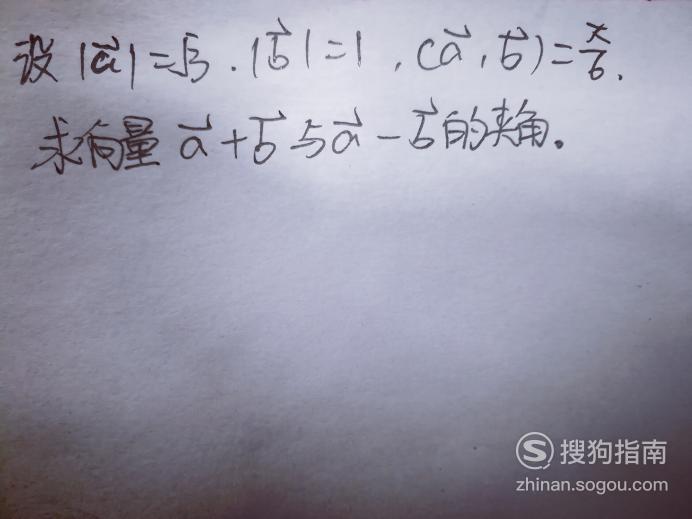 设|a⃗|=√3.|b⃗|=1,(a⃗,b⃗)=π/6.
求向量a⃗+b⃗与a⃗-b⃗的夹角。
搜狗指南
zhinan.sogou.com